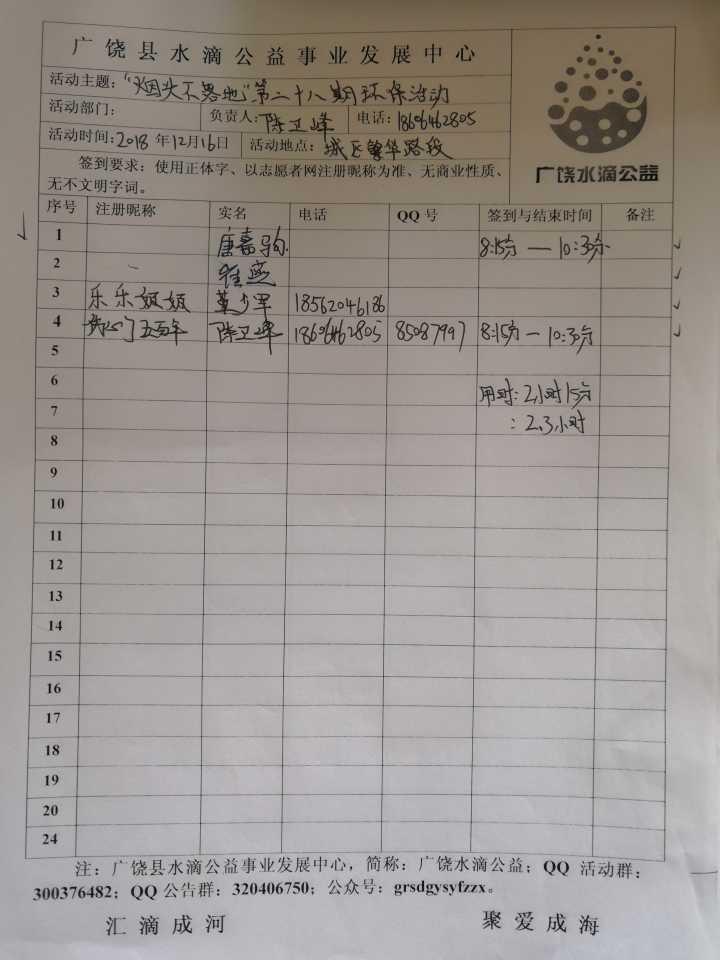 广饶县水滴公益事业发展中心
活动主题：“烟头不落地”第二十八期环保活动
活动部门： 负责人：陈卫峰 电话：18606462805
活动时间：2018年12月16日 活动地点：城区繁华路段
签到要求：使用正体字、以志愿者网注册昵称为准、无商业性质、
无不文明字词。
广饶水滴公益
序号 注册昵称 实名 电话 QQ号 签到与结束时间 备注
1 唐嘉 8:15分 — 10:30分
2 燕
3 乐乐姐姐 18562046186
4 五百年 陈卫峰 18606462805 85087997 8:15分 — 10:30分
5
6 用时：2小时15分
7 ：2.3小时
8
9
10
11
12
13
14
15
16
17
18
19
20
24
注：广饶县水滴公益事业发展中心，简称：广饶水滴公益；QQ 活动群：
300376482；QQ 公告群：320406750；公众号：grsdgysyfzzx。
汇滴成河 聚爱成海